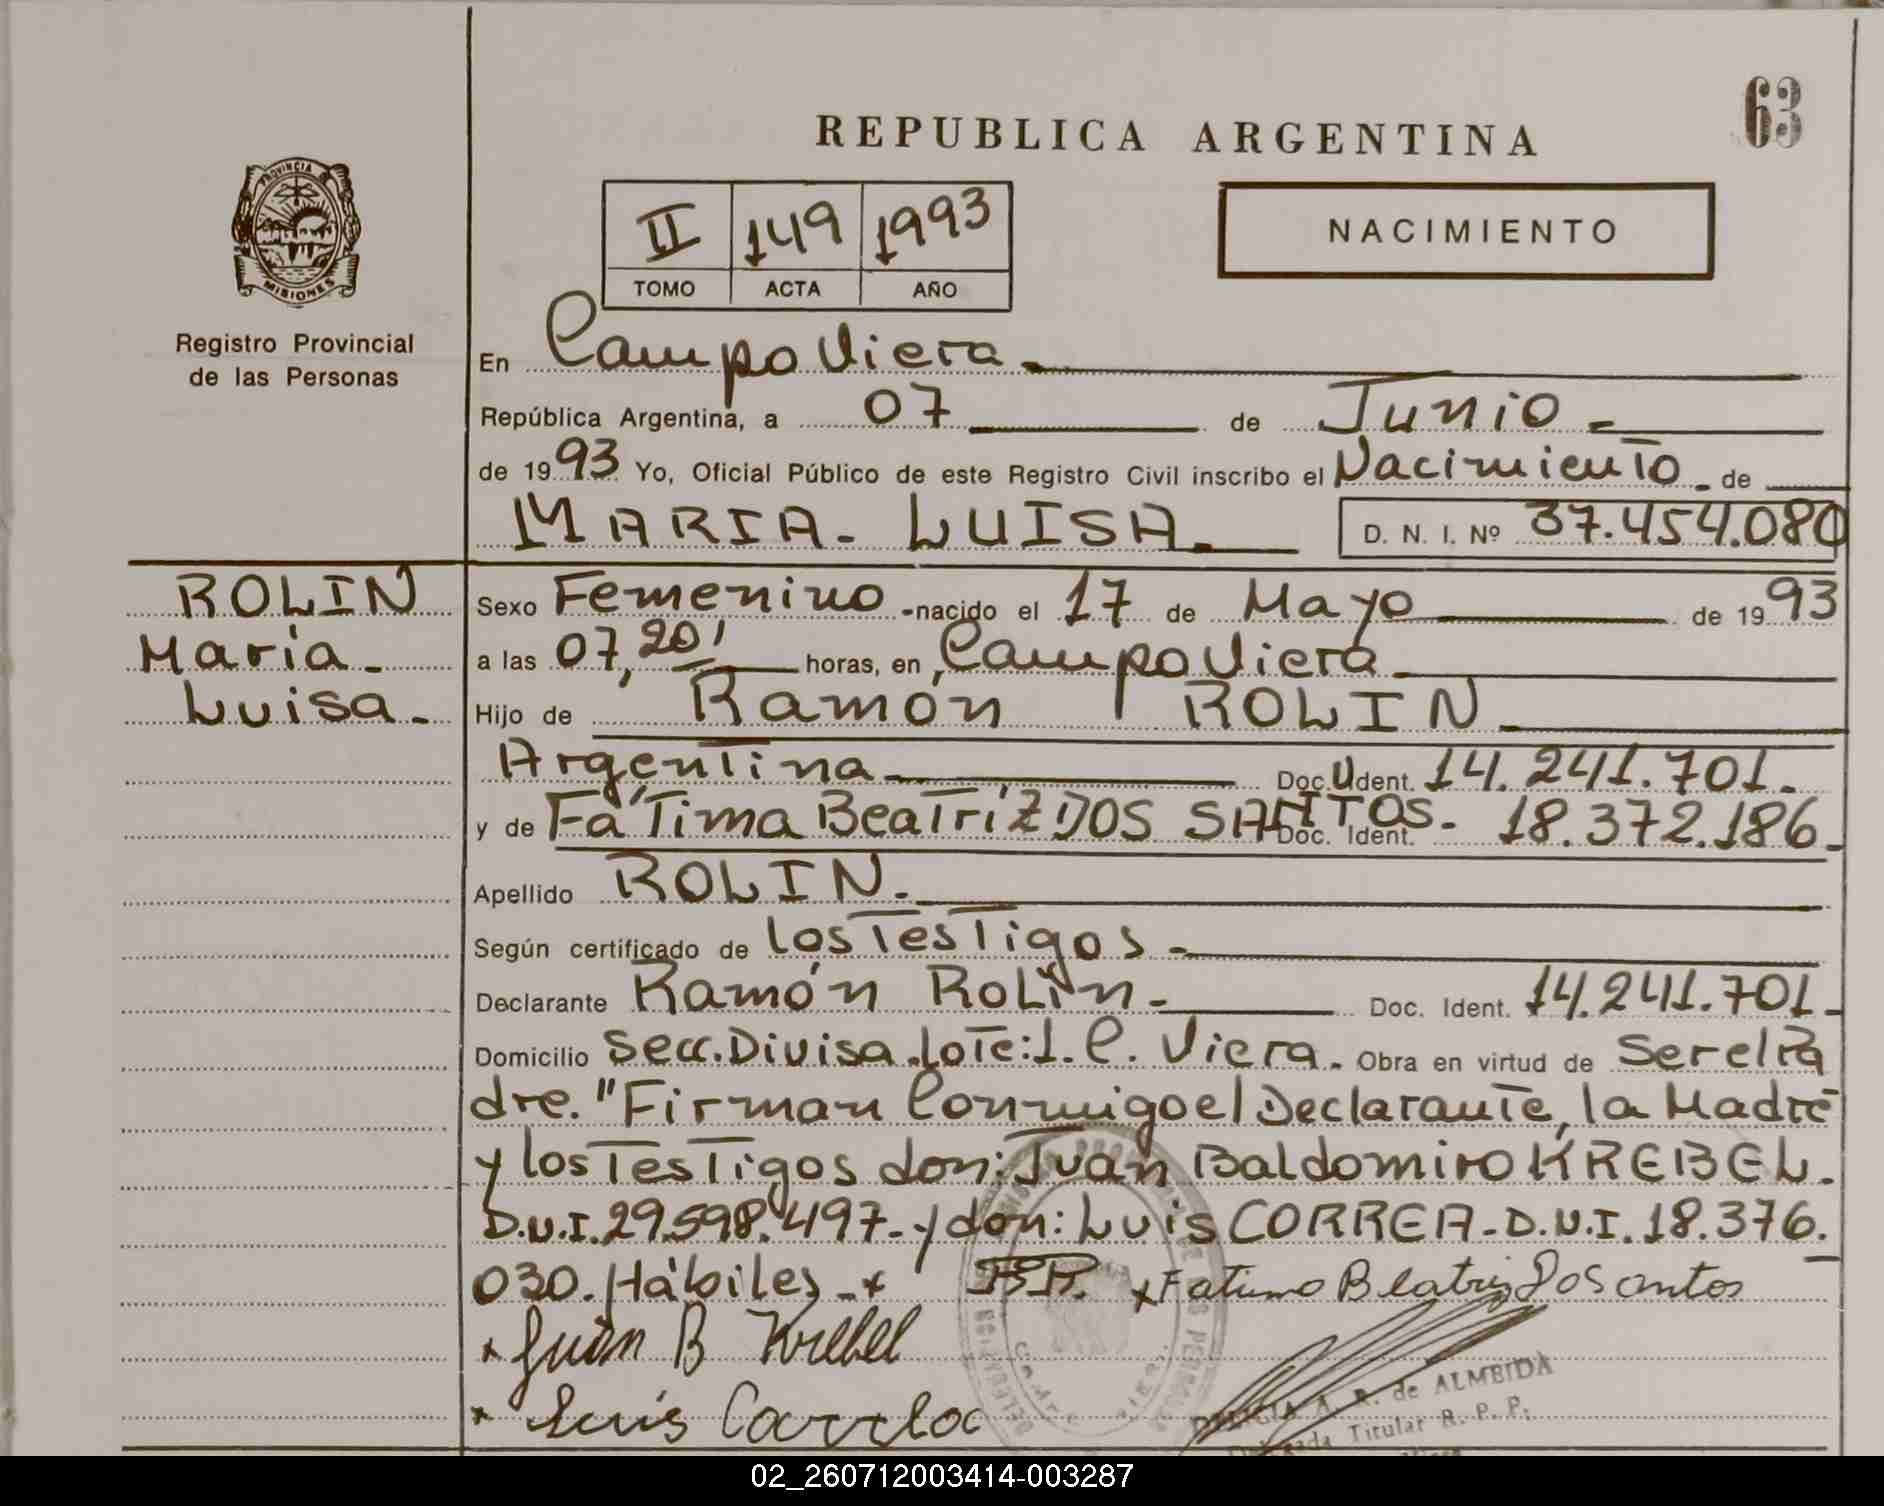 63
REPUBLICA ARGENTINA
PROVINCIA
MISIONES
Registro Provincial
de las Personas
II 149 1993
TOMO ACTA AÑO
NACIMIENTO
En Campo Viera.
República Argentina, a 07 de Junio
de 1993 Yo, Oficial Público de este Registro Civil inscribo el Nacimiento de
MARIA LUISA. D. N. I. Nº 37.454.080
ROLIN
Maria
Luisa
Sexo Femenino - nacido el 17 de Mayo de 1993
a las 07,20' horas, en Campo Viera
Hijo de Ramón ROLIN
Argentina Doc. Ident. 14.241.701.
y de Fátima Beatríz DOS SANTOS - Doc. Ident. 18.372.186
Apellido ROLIN.
Según certificado de los Testigos
Declarante Ramón Rolin Doc. Ident. 14.241.701
Domicilio Secc. Divisa. Lote: 1. C. Viera. Obra en virtud de Ser el Pa
dre. "Firman Conmigo el Declarante, la Madre
y los Testigos don: Juan Baldomiro KREBEL.
D.N.I. 29.598.497. y don: Luis CORREA - D.N.I. 18.376.
030. Hábiles
x Fatima Beatris Dos antos
x Juan B Krebel
x Luis
A. R. de ALMEIDA
Titular R. P. P.
02_260712003414-003287